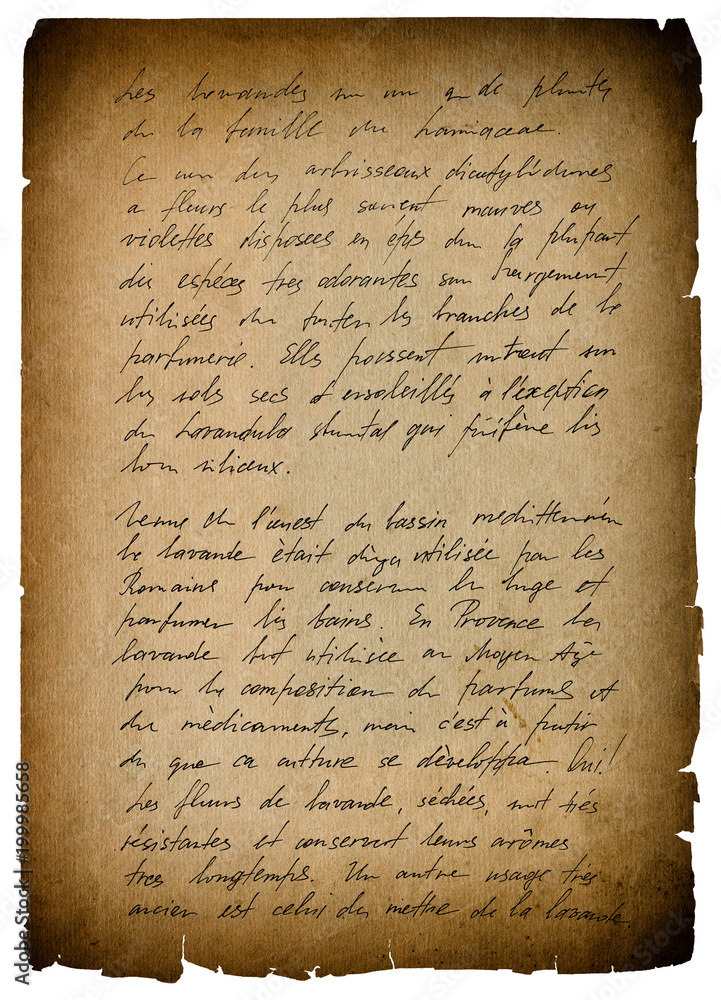 Les lavandes de plantes
de la famille du Lamiaceae.
Ce arbrisseaux dicotylédones
a fleurs le plus souvent mauves ou
violettes disposées en épis la plupart
des espèces tres odorantes sont largement
utilisées toutes les branches de la
parfumerie. Elles poussent sur
les sols secs et ensoleillés à l'éxception
du Lavandula qui les
siliceux.
l'ouest du bassin
la lavande ètait utilisée par les
Romains pour conserver le linge et
parfumer les bains. En Provence la
lavande fut utilisée au Moyen Age
pour la composition du parfums et
du mèdicaments, mais c'est à partir
du que ca culture se dèveloppa. Oui!
Les fleurs de lavande, séchées, sont trés
résistantes et conservent leurs arômes
tres longtemps. Un autre usage trés
ancien est celui de mettre de la lavande
Adobe Stock | #199985658
Adobe Stock